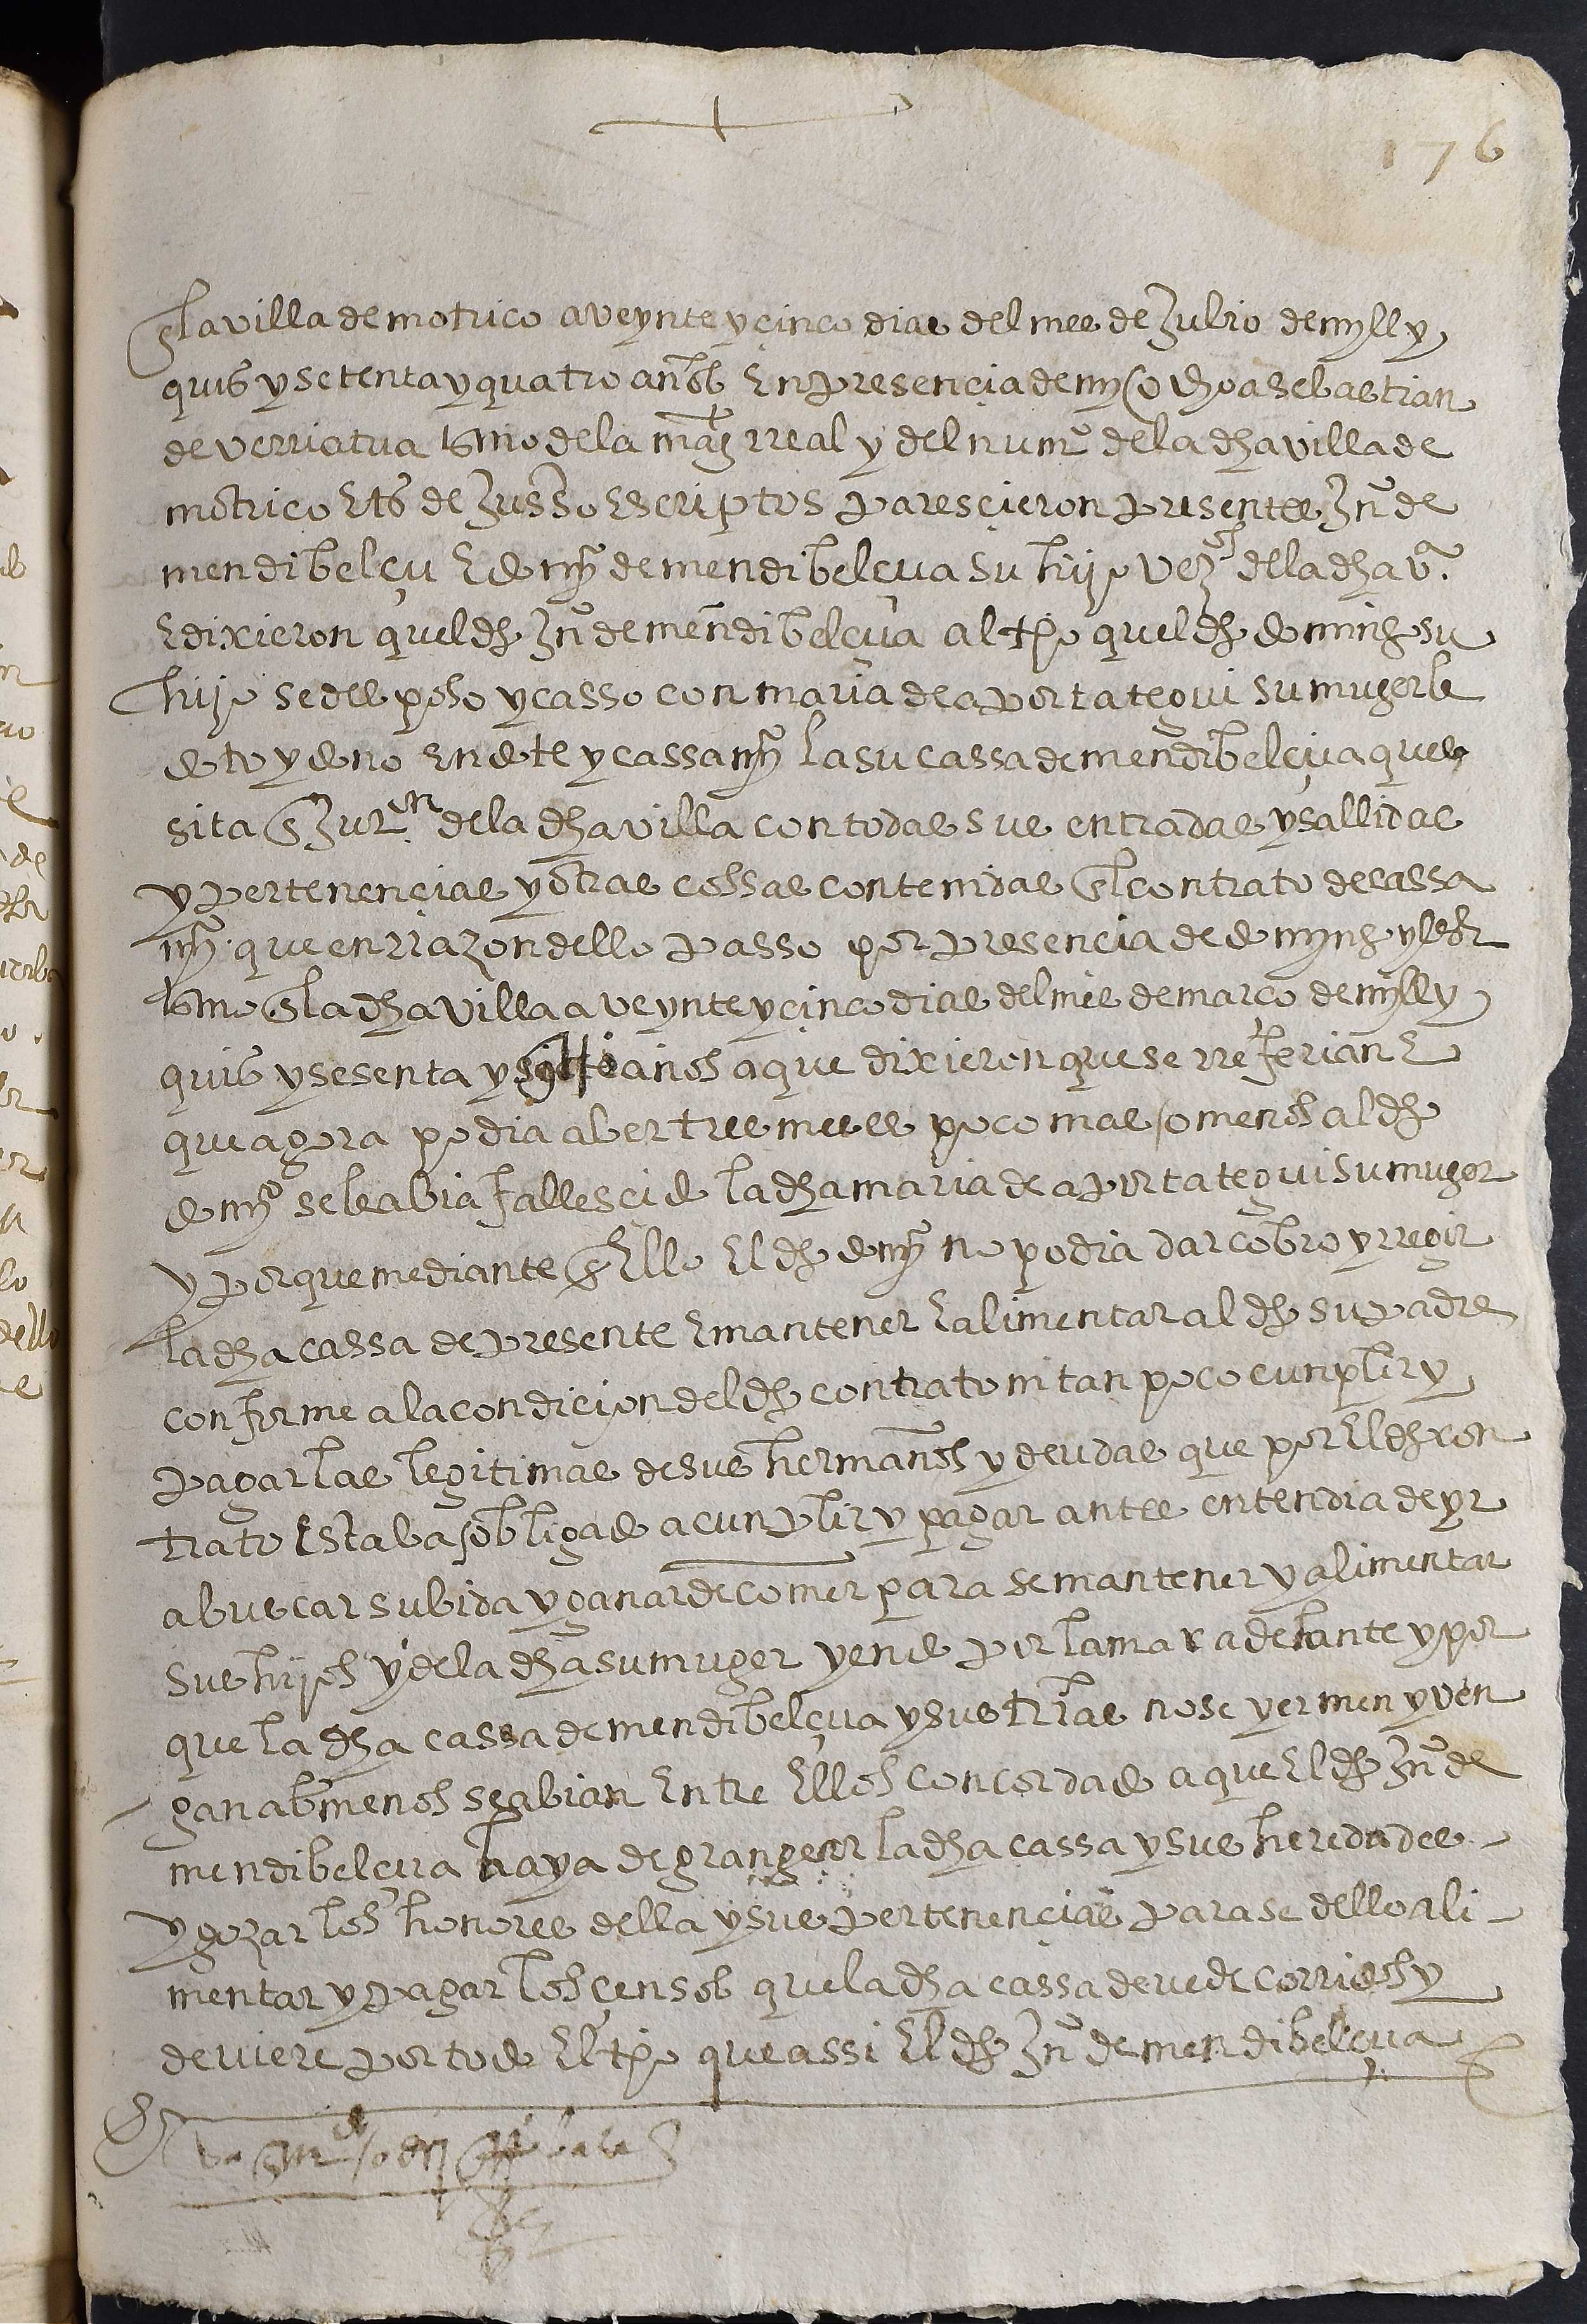 176
En la villa de motrico a veynte y çinco dias del mes de Jullio de myll y
quis y setenta y quatro años En presençia de my Ochoa sebastian
de verriatua sno de la mag rreal y del numo de la dha villa de
motrico & ts de Jusso Escriptos paresçieron presentes Jn de
mendibelçu E domy de mendibelçua su hijo vezos de la dha va
E dixieron quel dho Jn de mendibelçua al tpo quel dho domingo su
hijo se desposo y casso con maria de aportategui su muger le
doto y dono En dote y cassamy la su cassa de mendibelçua que es
sita En Juron de la dha villa con todas sus entradas y sallidas
y pertenençias y otras cossas contenidas En el contrato de cassa
my que en rrazon dello passo por presencia de domyngo
sno En la dha villa a veynte y çinco dias del mes de março de myll y
quis y sesenta y años a que dixieron que se rreferian E
que agora podia aber tres meses poco mas o menos al dho
domyo se le abia fallesçido la dha maria de aportategui su muger
y porque mediante Ello El dho domyo no podia dar cobro y rregir
la dha cassa de presente E mantener E alimentar al dho su padre
conforme a la condiçion del dho contrato ni tan poco cunplir y
pagar las legitimas de sus hermanos y deudas que por El dho con
trato Estaba obligado a cunplir y pagar antes entendia de yr
a buscar su bida y ganar de comer para se mantener y alimentar
sus hijos y de la dha su muger yendo por la mar adelante y por
que la dha cassa de mendibelçua y sus trras no se yermen y ven
gan a menos se abian Entre Ellos concordado a que El dho Jn de
mendibelçua haya de grangear la dha cassa y sus heredades
y gozar los honores della y sus pertenençias para se dello ali
mentar y pagar los çensos que la dha cassa deve de corridos y
deviere por todo El tpo que assi El dho Jn de mendibelçua